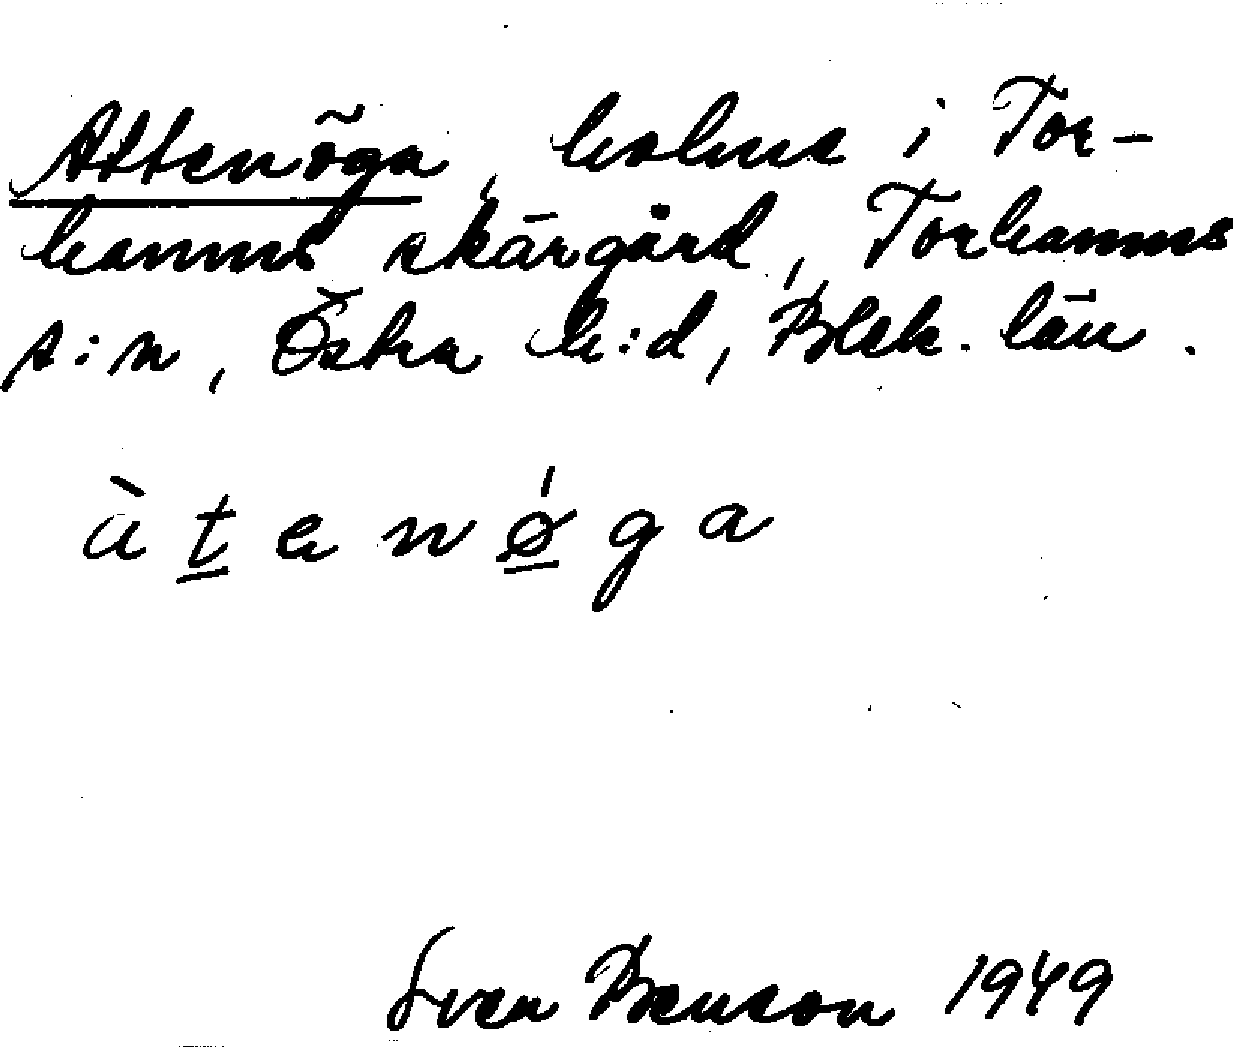 Attenöga, holme i Tor-
hamns skärgård, Torhamns
s:n, Östra h:d, Blek. län.
àtenǿga
Sven Benson 1949